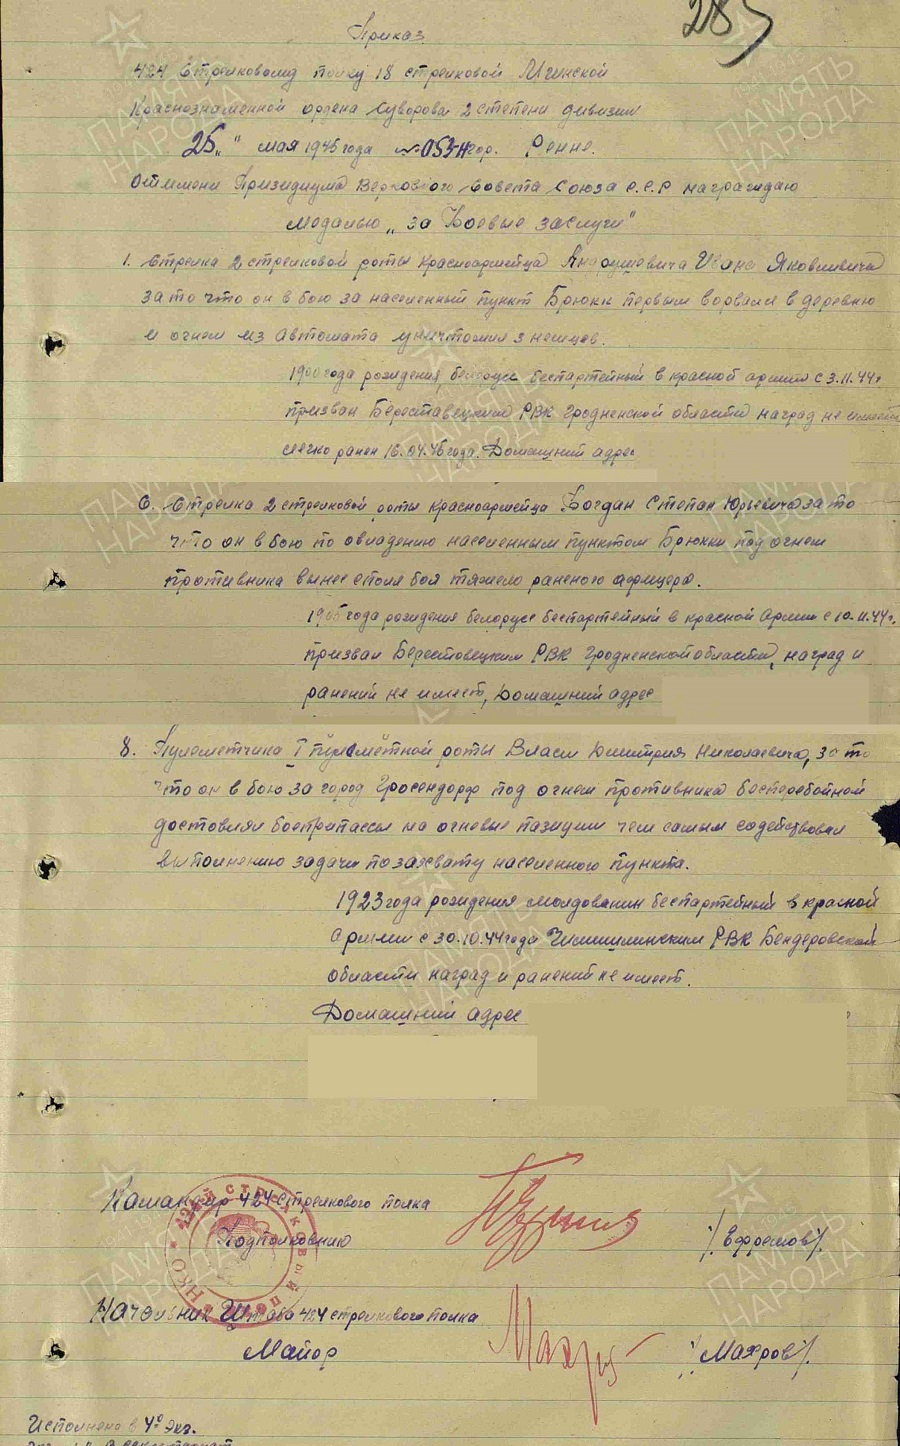 285
Приказ
424 Стрелковому полку 18 стрелковой Мгинской
Краснознаменной ордена Суворова 2 степени дивизии
"25" мая 1945 года № 053-н гор. Ренне.
От имени Призидиума Верховного Совета Союза С.С.Р награждаю
Медалью „За Боевые заслуги"
1. Стрелка 2 стрелковой роты красноармейца Ивана Яковлевича
за то что он в бою за населенный пункт Брюкк первым ворвался в деревню
и огнем из автомата уничтожил 3 немцев.
1900 года рождения, белорусс беспартейный в красной армии с 3.11.44г
призван Береставецким РВК Гродненской области наград не имеет
легко ранен 16.04.45 года. Домашний адрес
6. Стрелка 2 стрелковой роты красноармейца Богдан Степан Юрьевича за то
что он в бою по овладению населенным пунктом Брюкки под огнем
противника вынес с поля боя тяжело раненого афицера.
1905 года рождения белорусс беспартейный в красной Армии с 10.11.44г.
призван Берестовецким РВК Гродненской области, наград и
ранений не имеет, Домашний адрес
8. Пулеметчика 1 пулеметной роты Власи Дмитрия Николаевича, за то
что он в бою за город Гросендорф под огнем противника бесперебойной
достовлял боеприпассы на огневые пазиции чем самым содействовал
выполнению задачи по захвату населенного пункта.
1923 года рождения молдованин беспартейный в красной
армии с 30.10.44 года Чимишлинским РВК Бендеровской
области наград и ранений не имеет.
Домашний адрес
Командир 424 стрелкового полка
Подполковник
/Ефремов/
Начальник Штаба 424 стрелкового полка
Майор
/Махров/
Исполнено в 4º экз.
ПАМЯТЬ НАРОДА